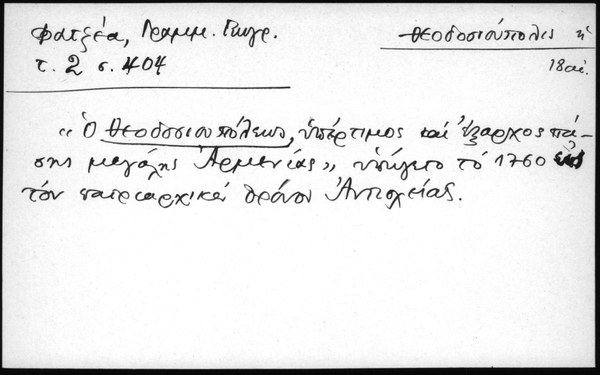 Φατζέα, Γραμμ. Γεωγρ.
τ. 2 σ. 404
Θεοδοσιούπολις ἡ
18 αἰ.
«Ὁ Θεοδοσιουπόλεως, ὑπέρτιμος καὶ ἔξαρχος πά-
σης μεγάλης Ἀρμενίας», ὑπήγετο τὸ 1760 εἰς
τὸν πατριαρχικὸν θρόνον Ἀντιοχείας.